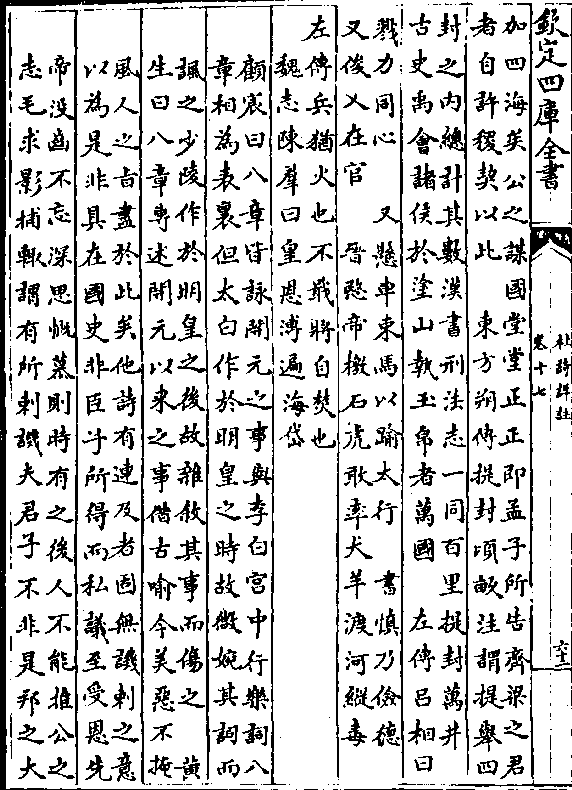 欽定四庫全書
杜詩詳註
卷十七
加四海矣公之謀國堂堂正正即孟子所告齊梁之君
者自許稷契以此　東方朔傳提封頃畝注謂提舉四
封之内總計其數漢書刑法志一同百里提封萬井
古史禹會諸侯於塗山執玉帛者萬國　左傳吕相曰
戮力同心　又懸車束馬以踰太行　書慎乃儉德
又俊乂在官　晉愍帝檄石虎敢率犬羊渡河縱毒
左傳兵猶火也不戢將自焚也
魏志陳羣曰皇恩溥遍海岱
顧宸曰八章皆詠開元之事與李白宫中行樂詞八
章相為表裏但太白作於明皇之時故微婉其詞而
諷之少陵作於明皇之後故雜敘其事而傷之　黄
生曰八章專述開元以來之事借古喻今美惡不掩
風人之㫖盡於此矣他詩有連及者固無譏刺之意
以為是非具在國史非臣子所得而私議至受恩先
帝没齒不忘深思慨慕則時有之後人不能推公之
志毛求影捕輙謂有所刺譏夫君子不非是邦之大